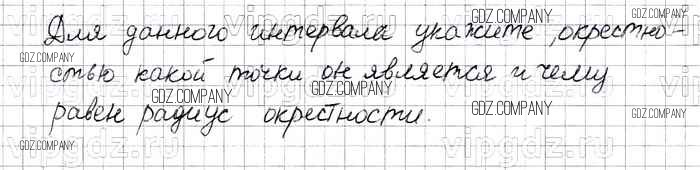 Для данного интервала укажите, окрестно-
стью какой точки он является и чему
равен радиус окрестности.
GDZ.COMPANY
GDZ.COMPANY
GDZ.COMPANY
GDZ.COMPANY
GDZ.COMPANY
GDZ.COMPANY
GDZ.COMPANY
GDZ.COMPANY
vipgdz.ru
vipgdz.ru